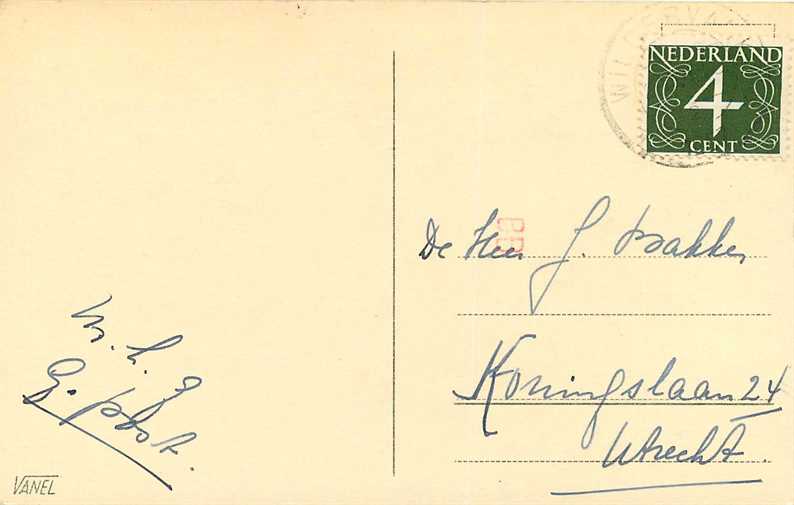 NEDERLAND
4
CENT
De Heer J. Bakker
Koningslaan 24
Utrecht.
m. h. g.
G. Post.
VANEL